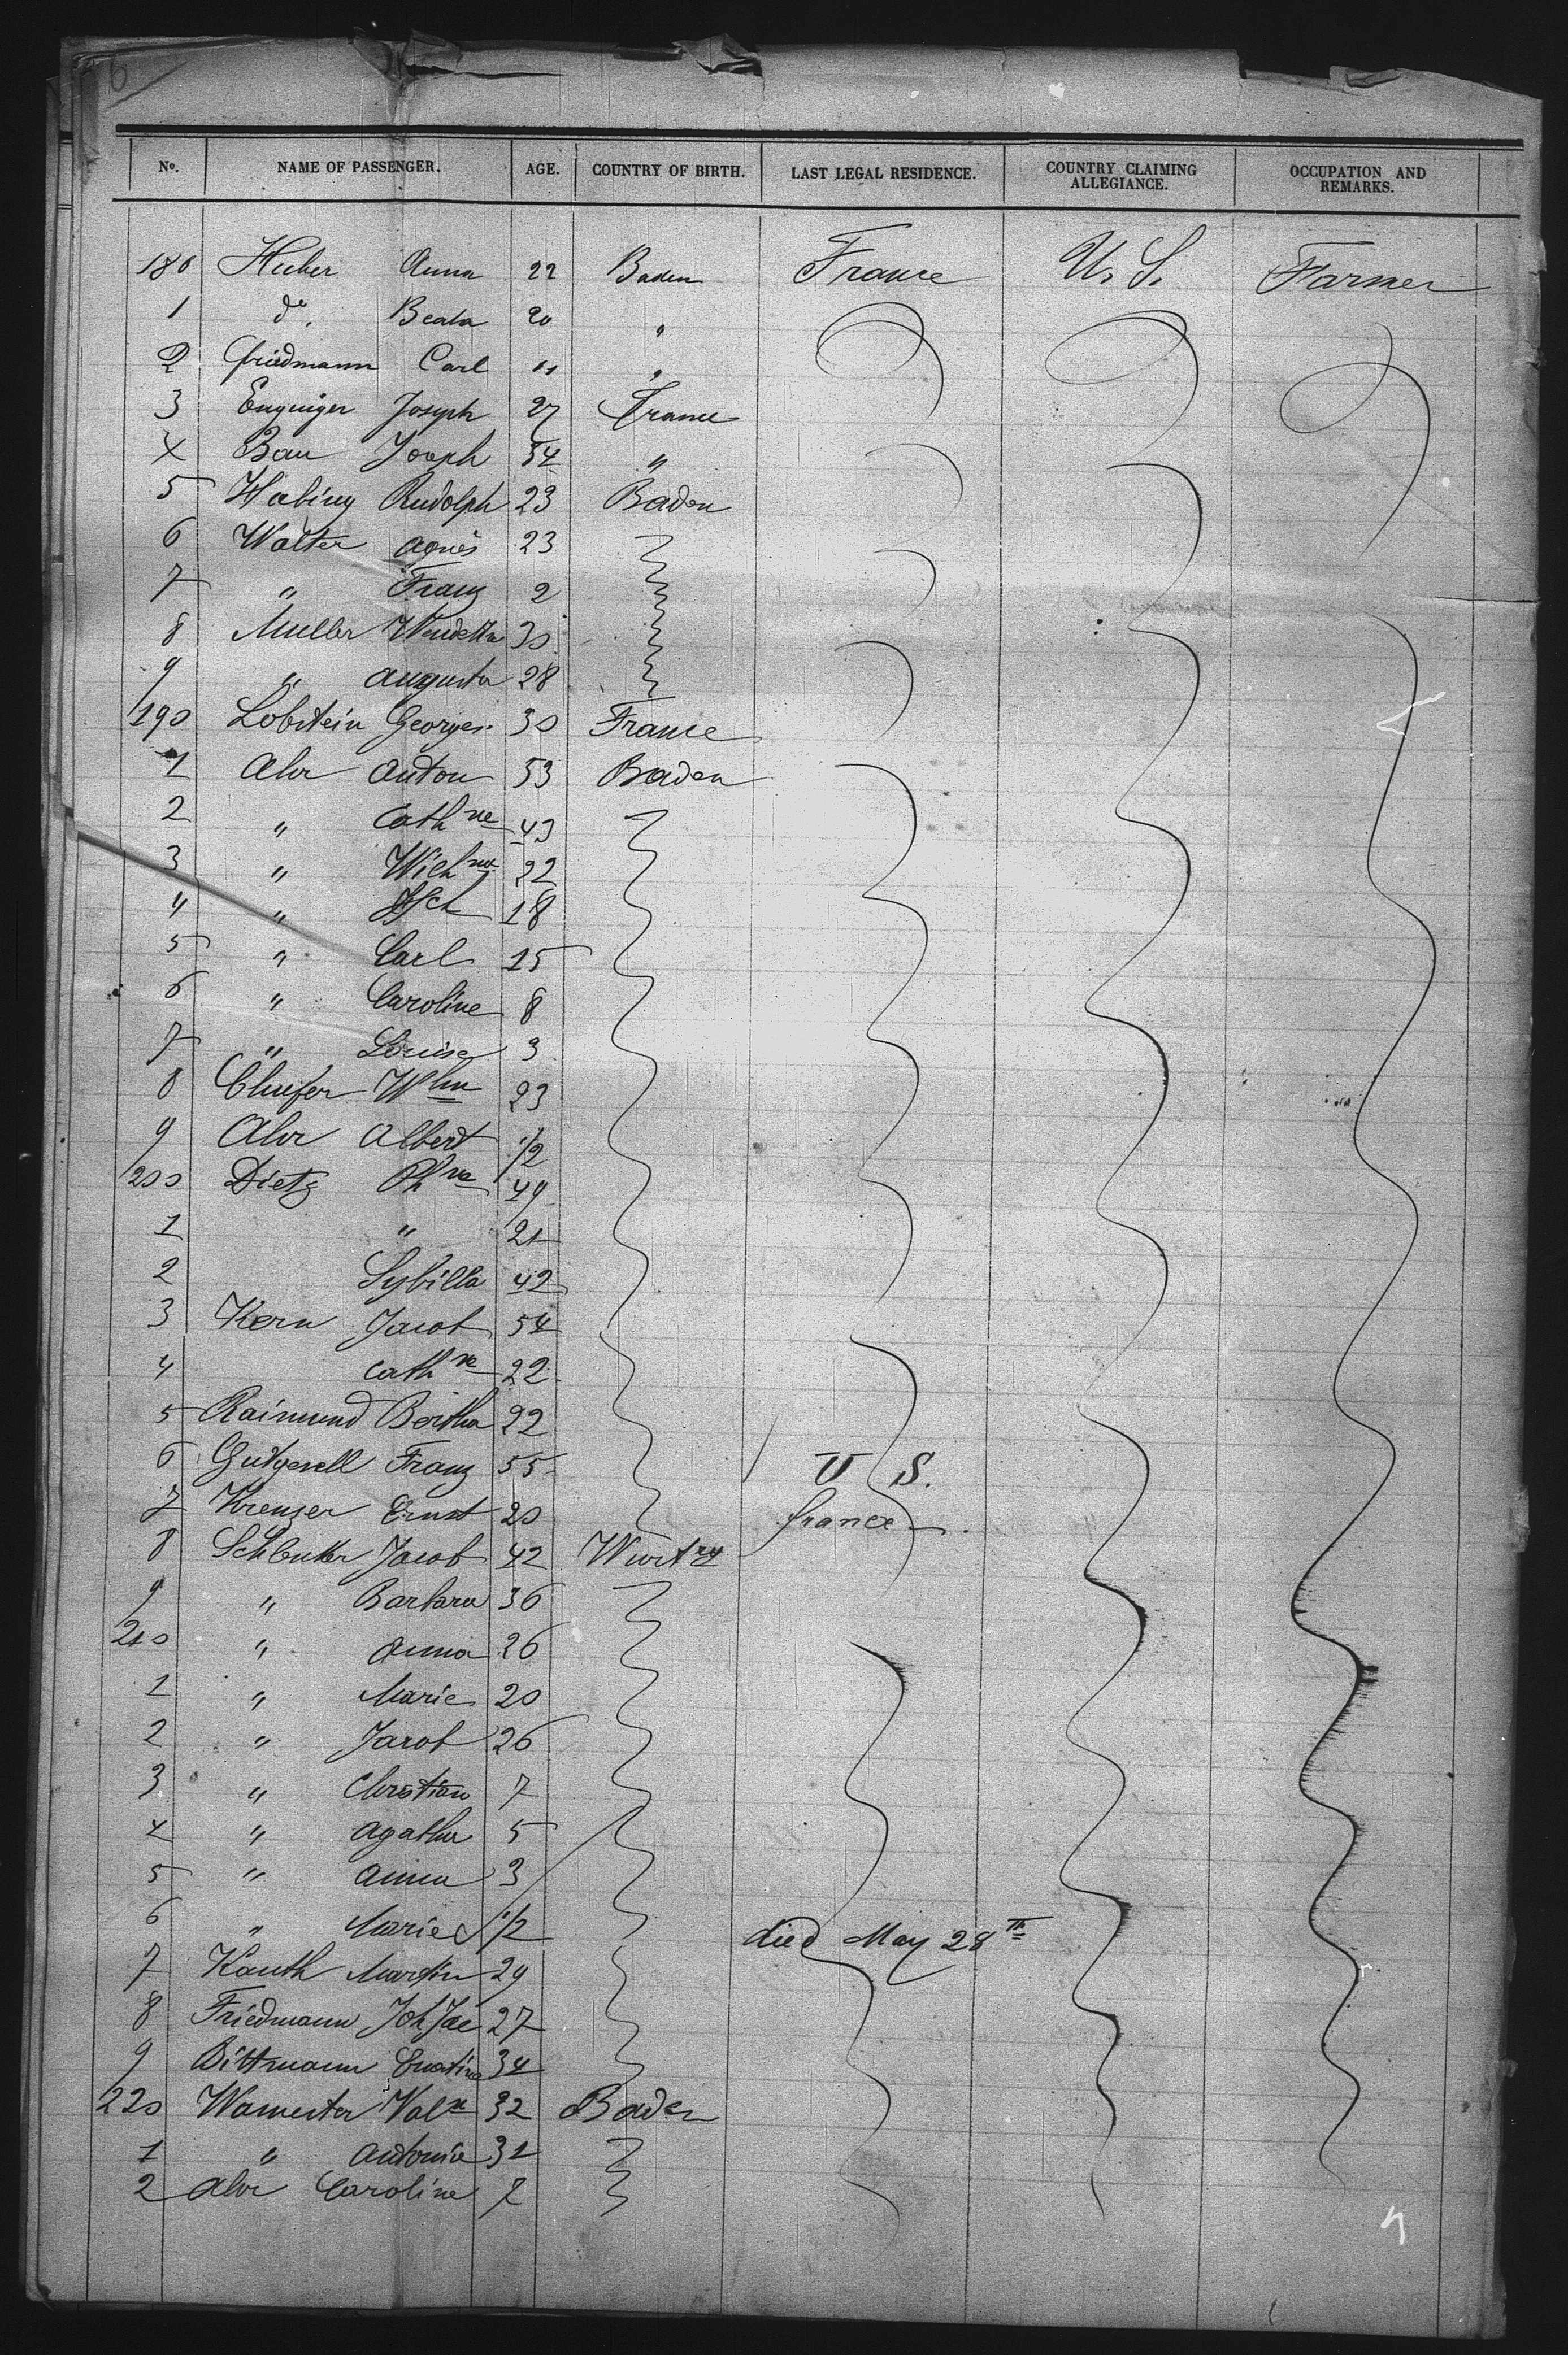 No. NAME OF PASSENGER. AGE. COUNTRY OF BIRTH. LAST LEGAL RESIDENCE. COUNTRY CLAIMING ALLEGIANCE. OCCUPATION AND REMARKS.
180 Huber Anna 22 Baden France U. S. Farmer
1 do. Beata 20 "
2 Friedmann Carl 11 "
3 Joseph 27 France
4 Bau Joseph 54 "
5 Rudolph 23 Baden
6 Walter Agnes 23
7 " Franz 2
8 Muller 30
9 " Augusta 28
190 Lobstein Georges 30 France
1 Ahr Anton 53 Baden
2 " Cathne 43
3 " 22
4 " 18
5 " Carl 15
6 " Caroline 8
7 " Louise 3
8 Wlm 23
9 Ahr Albert 1/2
200 Dietz Phne 49
1 " 21
2 Sybilla 42
3 Kern Jacob 54
4 Cathne 22
5 Raimund Bertha 22
6 Gutgesell Franz 55 U S.
7 Krenzer Ernst 20 france
8 Jacob 42 Wurtzg
9 " Barbara 36
210 " Anna 26
1 " Marie 20
2 " Jacob 26
3 " Christian 7
4 " Agatha 5
5 " Anna 3
6 " Marie 1/2 died May 28th
7 Kauth Martin 29
8 Friedmann Joh Jac 27
9 Bittmann 34
220 Valn 32 Baden
1 " Antonia 31
2 Ahr Caroline 7